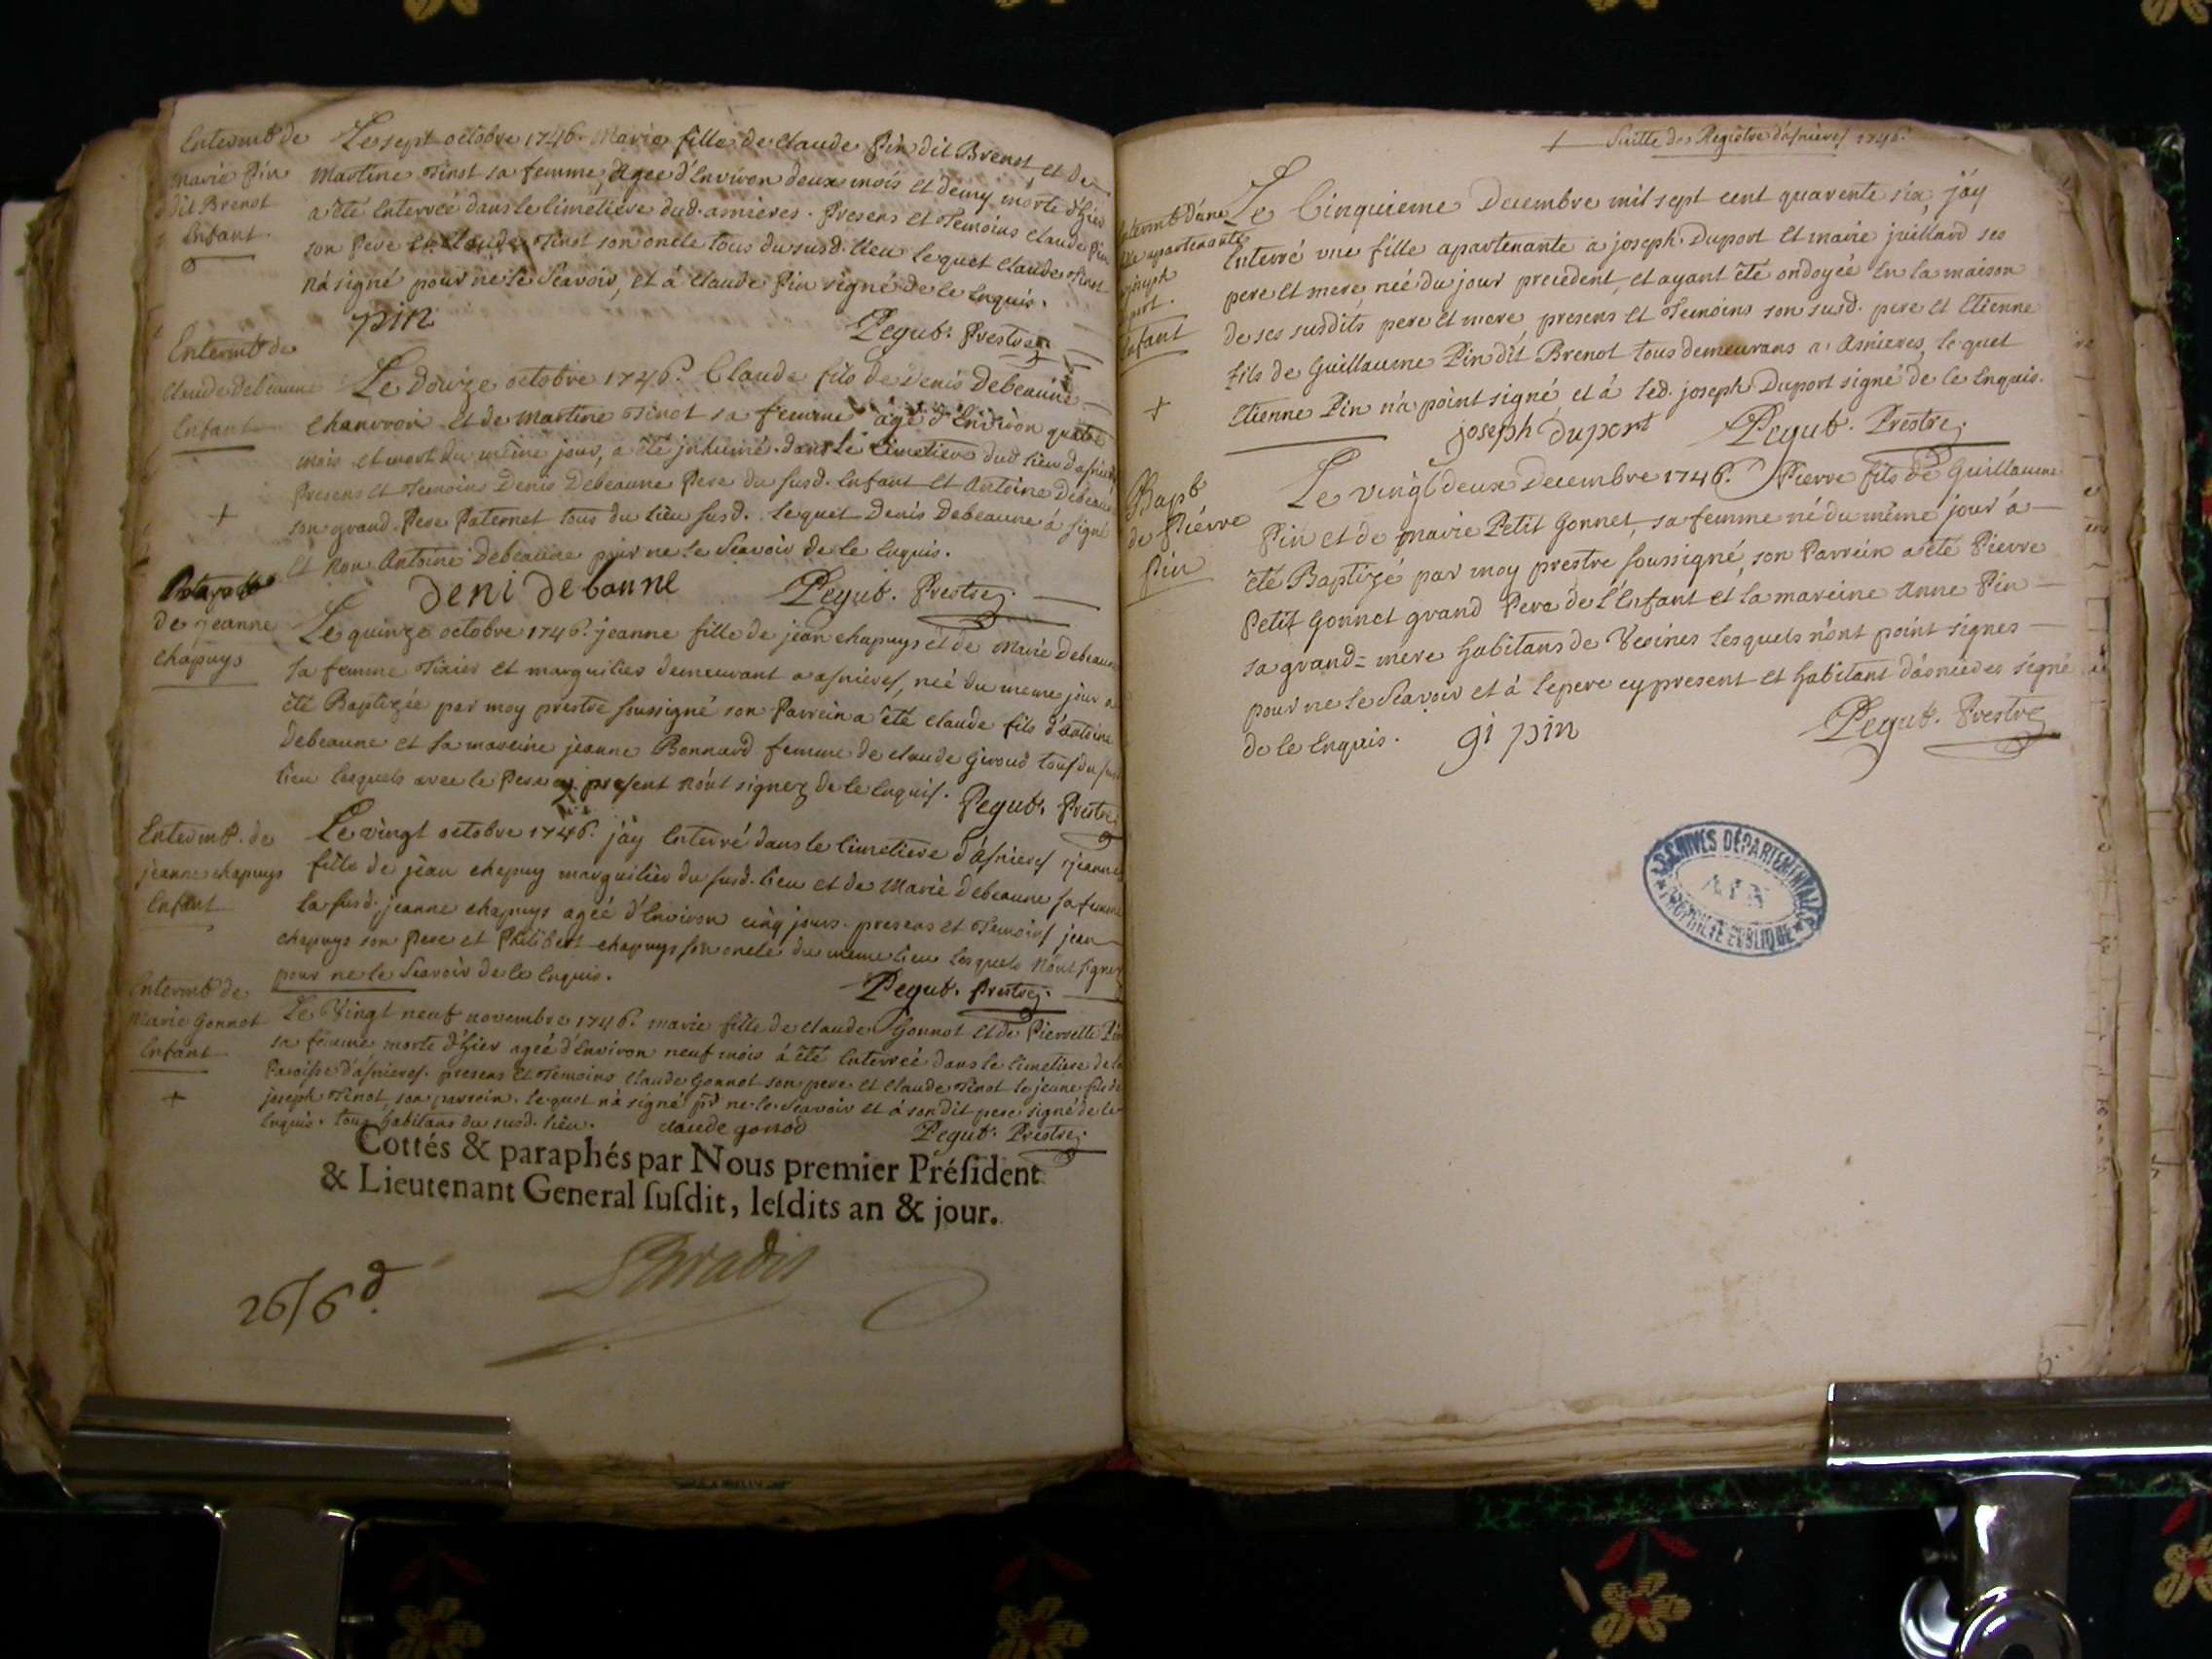 Enterrmt de
Marie Pin
dit Brenot
Enfant.
Le sept octobre 1746. Marie fille de Claude Pin dit Brenot et de
Martine Tinot sa femme, Agée d'Environ deux mois et demy morte d'hier
a été Enterrée dans le Cimetiére dud. asnieres. Presens et Temoins Claude Pin
son Pere et Claude Tinot son oncle tous du susd. lieu lequel Claude Tinot
n'a signé pour ne le Scavoir, et à Claude Pin signé de ce Enquis.
pin Pegut. Prestre.
Enterrmt de
Claude debeaune
Enfant
+
Le Douze octobre 1746. Claude fils de Denis Debeaune
et de Martine Tinot sa femme agé d'Environ quatre
mois et mort du même jour, a été jnhumé dans le Cimetiere dud lieu d'asnieres
Presens et Temoins Denis Debeaune Pere du susd. Enfant et Antoine Debeaune
son grand Pere Paternel tous du lieu susd. lequel Denis Debeaune à signé
et non Antoine Debeaune pour ne le Scavoir de ce Enquis.
deni debonne Pegut. Prestre.
de jeanne
Chapuys
Le quinze octobre 1746. jeanne fille de jean chapuys et de Marie Debeaune
sa femme Tixier et marguilier demeurant a asnieres, née du meme jour a
été Baptizée par moy prestre soussigné son Parrein a été claude fils d'antoine
Debeaune et sa mareine jeanne Bonnard femme de claude Giroud tous du susd
lieu lesquels avec le Pere cy present n'ont signez de ce Enquis. Pegut. Prestre.
Enterrmt. de
jeanne chapuys
Enfant
Le vingt octobre 1746. j'ay Enterré dans le Cimetiere d'Asnieres jeanne
fille de jean chapuy marguilier du susd. lieu et de Marie Debeaune sa femme
la susd. jeanne chapuys ageé d'Environ cinq jours. presens et Temoins jean
chapuys son Pere et Philibert chapuys son oncle du meme lieu lesquels n'ont signez
pour ne le Scavoir de ce Enquis. Pegut. Prestre.
Enterrmt de
Marie Gonnot
Enfant
+
Le Vingt neuf novembre 1746. marie fille de claude Gonnot et de Pierrette Pin
sa femme morte d'hier ageé d'Environ neuf mois à été Enterreé dans le Cimetiere de la
Paroisse d'asnieres. presens et Temoins claude Gonnot son pere et claude Tinot le jeune fils de
joseph Tinot son parrein. lequel n'a signé pr ne le Scavoir et à son dit pere signé de ce
Enquis. tous habitans du susd. lieu. claude gonod Pegut. Prestre.
Cottés & paraphés par Nous premier Président
& Lieutenant General susdit, lesdits an & jour.
26/6d.
+ Suitte du Registre d'asnieres 1746.
Enterrmt d'une
fille apartenante
a joseph
Duport.
Enfant
+
Le Cinquieme Decembre mil sept cent quarente six, j'ay
Enterré une fille apartenante à joseph Duport et marie juillard ses
pere et mere née du jour precedent, et ayant été ondoyée En la maison
de ses susdits pere et mere, presens et Temoins son susd. pere et Etienne
fils de Guillaume Pin dit Brenot tous demeurans a Asnieres, lequel
Etienne Pin n'a point signé et à led. joseph Duport signé de ce Enquis.
joseph duport Pegut. Prestre.
Bapt
de Piérre
Pin
Le vingt deux Decembre 1746. Pierre fils de Guillaume
Pin et de marie Petit Gonnet, sa femme né du même jour à
été Baptizé par moy prestre soussigné, son Parrein a été Pierre
Petit Gonnet grand Pere de l'Enfant et la mareine Anne Pin
sa grand=mere habitans de Vesines lesquels n'ont point signes
pour ne le Scavoir et à le pere cy present et habitant d'asnieres signé
de ce Enquis. gi pin Pegut. Prestre
ARCHIVES DÉPARTEMENTALES
AIN
PROPRIÉTÉ PUBLIQUE